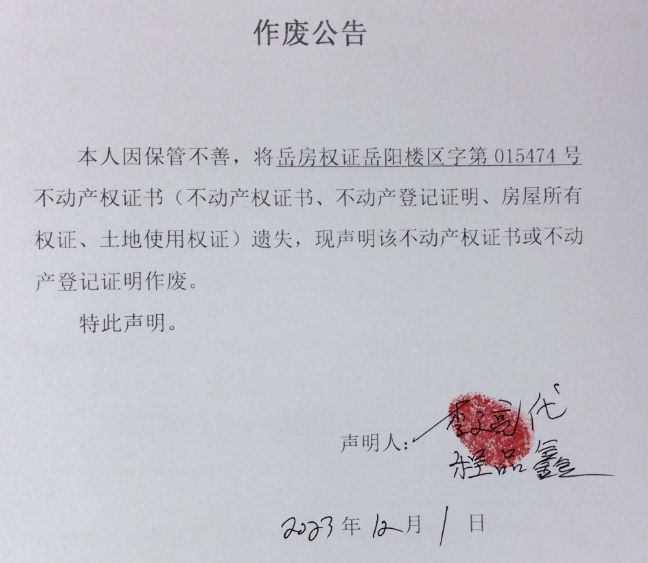 作废公告
本人因保管不善，将岳房权证岳阳楼区字第 015474 号
不动产权证书（不动产权证书、不动产登记证明、房屋所有
权证、土地使用权证）遗失，现声明该不动产权证书或不动
产登记证明作废。
特此声明。
声明人：李亮代
程品鑫
2023年12月1日